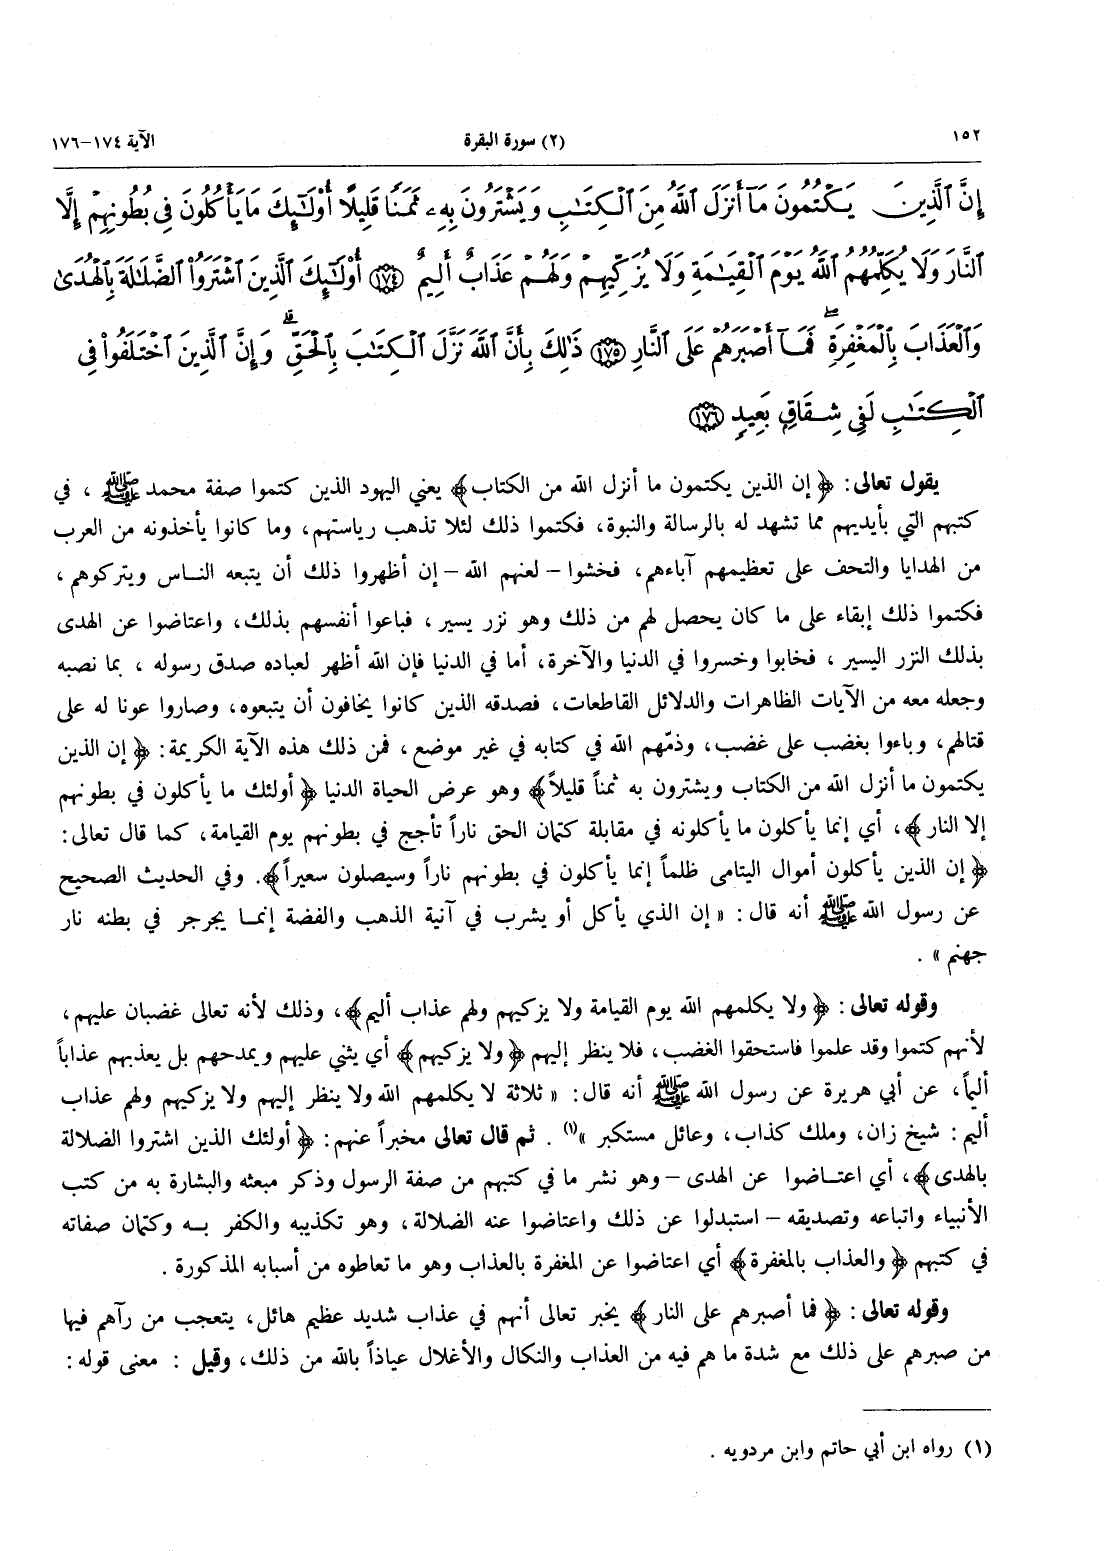 ١٥٢ (٢) سورة البقرة الآية ١٧٤-١٧٦
إِنَّ الَّذِينَ يَكْتُمُونَ مَا أَنزَلَ اللَّهُ مِنَ الْكِتَٰبِ وَيَشْتَرُونَ بِهِۦ ثَمَنًا قَلِيلًا أُوْلَٰٓئِكَ مَا يَأْكُلُونَ فِى بُطُونِهِمْ إِلَّا
النَّارَ وَلَا يُكَلِّمُهُمُ اللَّهُ يَوْمَ الْقِيَٰمَةِ وَلَا يُزَكِّيهِمْ وَلَهُمْ عَذَابٌ أَلِيمٌ ١٧٤ أُوْلَٰٓئِكَ الَّذِينَ اشْتَرَوُا الضَّلَٰلَةَ بِالْهُدَىٰ
وَالْعَذَابَ بِالْمَغْفِرَةِ ۚ فَمَآ أَصْبَرَهُمْ عَلَى النَّارِ ١٧٥ ذَٰلِكَ بِأَنَّ اللَّهَ نَزَّلَ الْكِتَٰبَ بِالْحَقِّ ۗ وَإِنَّ الَّذِينَ اخْتَلَفُوا۟ فِى
الْكِتَٰبِ لَفِى شِقَاقٍۭ بَعِيدٍ ١٧٦
يقول تعالى: ﴿ إن الذين يكتمون ما أنزل الله من الكتاب﴾ يعني اليهود الذين كتموا صفة محمد ﷺ ، في
كتبهم التي بأيديهم مما تشهد له بالرسالة والنبوة، فكتموا ذلك لئلا تذهب رياستهم، وما كانوا يأخذونه من العرب
من الهدايا والتحف على تعظيمهم آباءهم، فخشوا – لعنهم الله – إن أظهروا ذلك أن يتبعه الناس ويتركوهم ،
فكتموا ذلك إبقاء على ما كان يحصل لهم من ذلك وهو نزر يسير ، فباعوا أنفسهم بذلك، واعتاضوا عن الهدى
بذلك النزر اليسير ، فخابوا وخسروا في الدنيا والآخرة، أما في الدنيا فإن الله أظهر لعباده صدق رسوله ، بما نصبه
وجعله معه من الآيات الظاهرات والدلائل القاطعات، فصدقه الذين كانوا يخافون أن يتبعوه، وصاروا عونا له على
قتالهم، وباءوا بغضب على غضب، وذمّهم الله في كتابه في غير موضع، فمن ذلك هذه الآية الكريمة: ﴿ إن الذين
يكتمون ما أنزل الله من الكتاب ويشترون به ثمناً قليلاً﴾ وهو عرض الحياة الدنيا ﴿ أولئك ما يأكلون في بطونهم
إلا النار﴾، أي إنما يأكلون ما يأكلونه في مقابلة كتمان الحق ناراً تأجج في بطونهم يوم القيامة، كما قال تعالى:
﴿ إن الذين يأكلون أموال اليتامى ظلماً إنما يأكلون في بطونهم ناراً وسيصلون سعيراً﴾. وفي الحديث الصحيح
عن رسول الله ﷺ أنه قال: « إن الذي يأكل أو يشرب في آنية الذهب والفضة إنما يجرجر في بطنه نار
جهنم » .
وقوله تعالى: ﴿ ولا يكلمهم الله يوم القيامة ولا يزكيهم ولهم عذاب أليم﴾، وذلك لأنه تعالى غضبان عليهم،
لأنهم كتموا وقد علموا فاستحقوا الغضب، فلا ينظر إليهم ﴿ ولا يزكيهم﴾ أي يثني عليهم ويمدحهم بل يعذبهم عذاباً
أليماً، عن أبي هريرة عن رسول الله ﷺ أنه قال: « ثلاثة لا يكلمهم الله ولا ينظر إليهم ولا يزكيهم ولهم عذاب
أليم: شيخ زان، وملك كذاب، وعائل مستكبر »(١) . ثم قال تعالى مخبراً عنهم: ﴿ أولئك الذين اشتروا الضلالة
بالهدى﴾، أي اعتاضوا عن الهدى – وهو نشر ما في كتبهم من صفة الرسول وذكر مبعثه والبشارة به من كتب
الأنبياء واتباعه وتصديقه – استبدلوا عن ذلك واعتاضوا عنه الضلالة، وهو تكذيبه والكفر به وكتمان صفاته
في كتبهم ﴿ والعذاب بالمغفرة﴾ أي اعتاضوا عن المغفرة بالعذاب وهو ما تعاطوه من أسبابه المذكورة .
وقوله تعالى: ﴿ فما أصبرهم على النار ﴾ يخبر تعالى أنهم في عذاب شديد عظيم هائل، يتعجب من رآهم فيها
من صبرهم على ذلك مع شدة ما هم فيه من العذاب والنكال والأغلال عياذاً بالله من ذلك، وقيل : معنى قوله:
(١) رواه ابن أبي حاتم وابن مردويه .